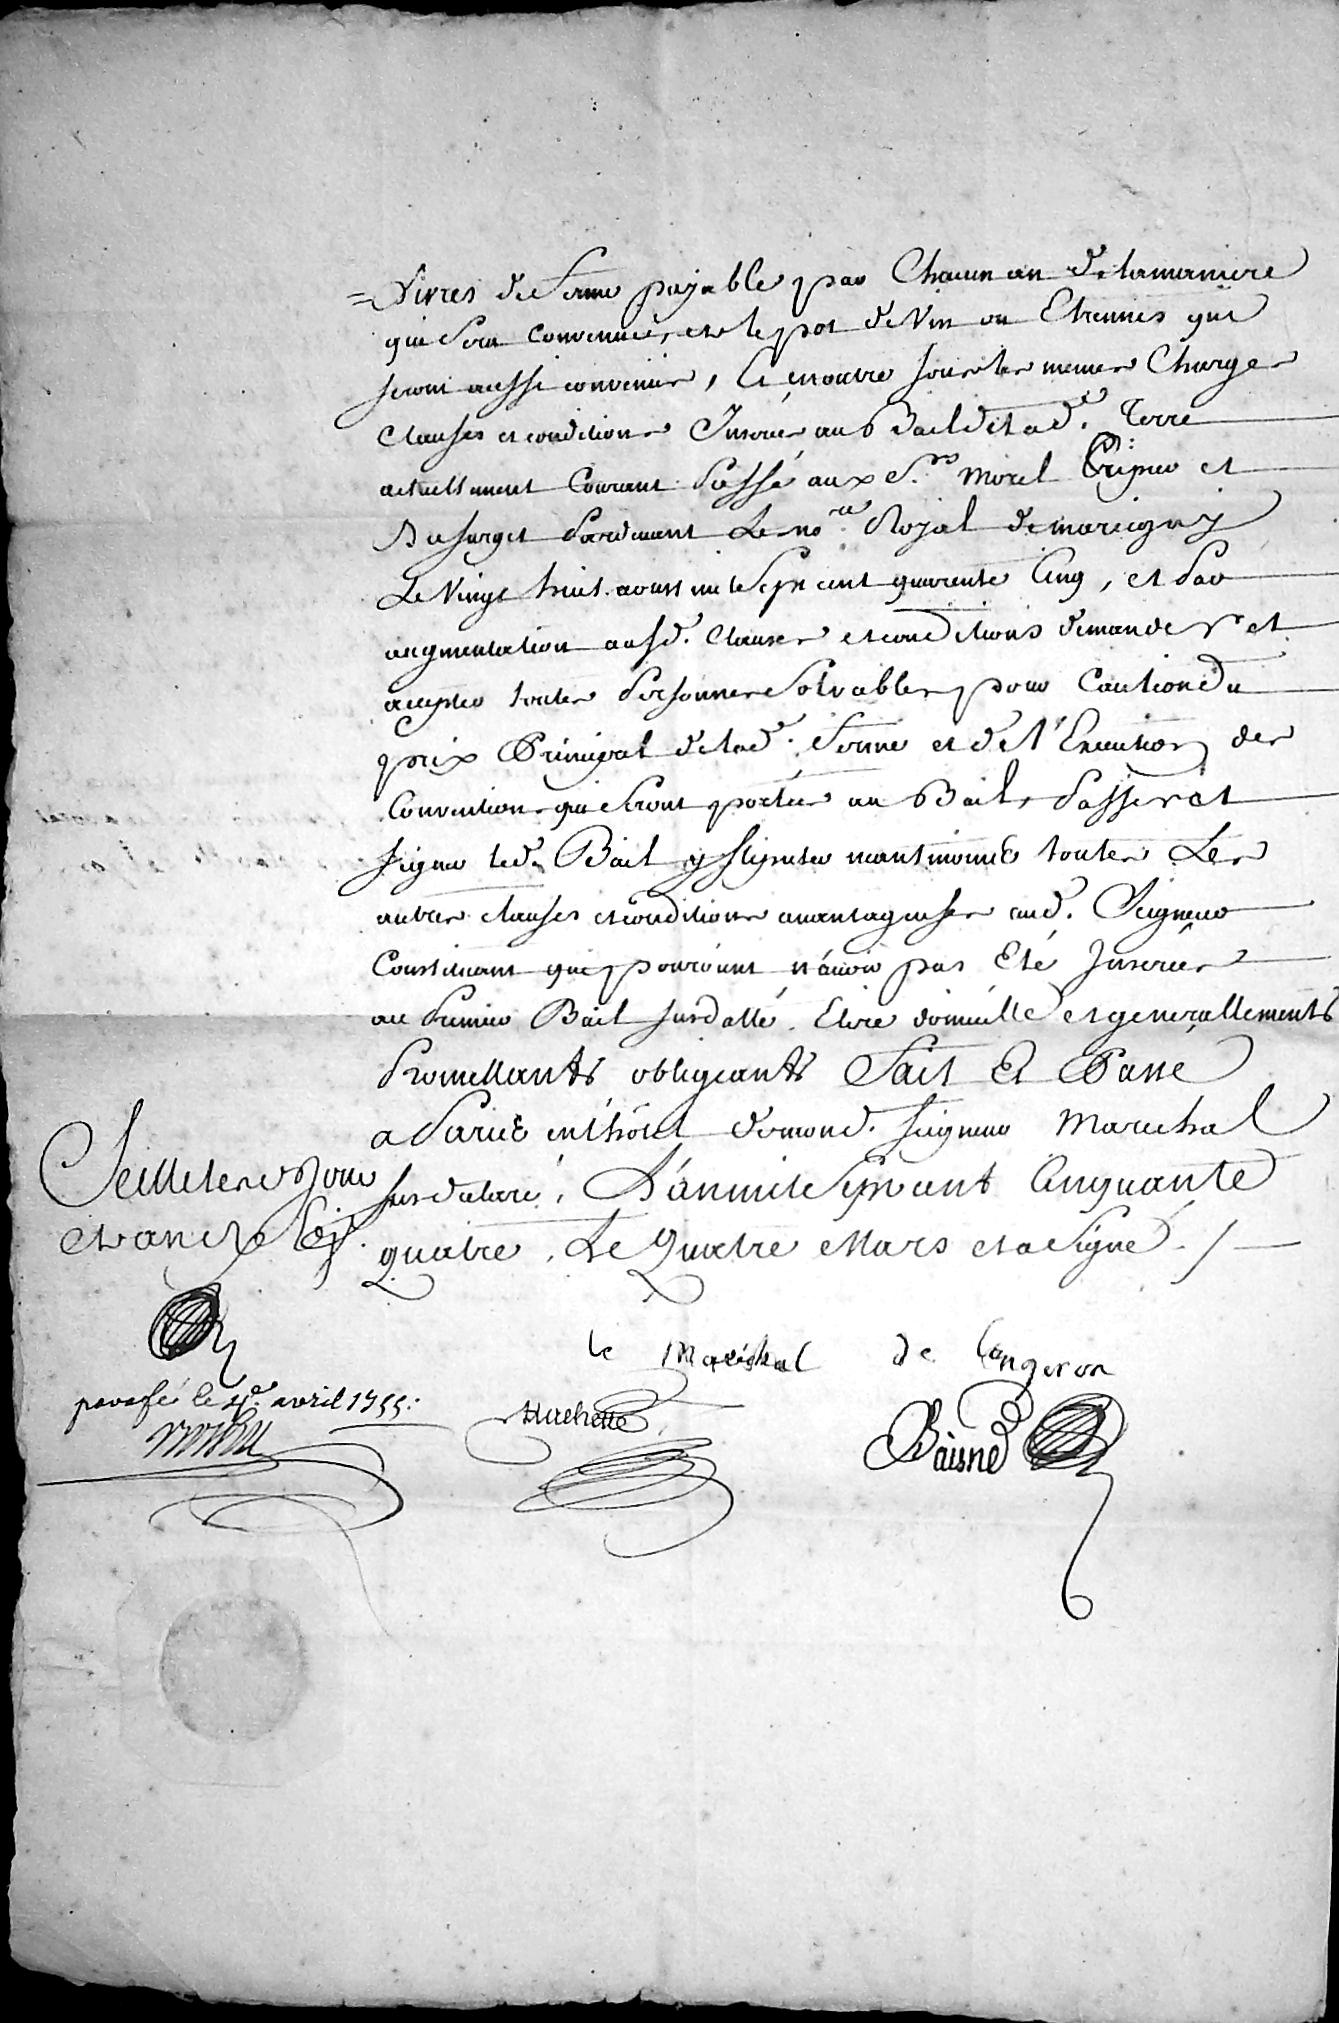 = Livres de ferme payable par Chacun an de la maniere
qui sera Convenüe, et le pot de Vin ou Etrennes qui
seront aussi convenus, Et en outre sous les memes Charges
Clauses et conditions Inserées au Bail de lad.e Terre
actuellement Courant Passé aux S.rs Morel et
Dusurget Pardevant Le no.re Royal de marcigny
Le Vingt huit aoust mil Sept cent quarente Cinq, et Par
augmentation ausd. Clauses et conditions demander et
accepter toutes Personnes Solvables pour Caution du
prix Principal de lad.e ferme et de l'Execution des
Conventions qui Seront portées au Bail, Passer et
signer led. Bail y stipuler toutes Les
autres clauses et conditions avantageuses aud. Seigneur
Constituant qui pouroient n'avoir pas Eté Inserées
au Premier Bail susdatté, Elire domicille et generallements
Promettants obligeants Fait Et Passé
a Paris en l'hôtel de mond. seigneur Marechal
susdeclaré, L'an mil Sept cent Cinquante
quatre, Le Quatre Mars et a Signé ./.
Scellé led. Jour
et an
le Maréshal de Langeron
parafé le 4.e avril 1755:
Huchette
Baisne